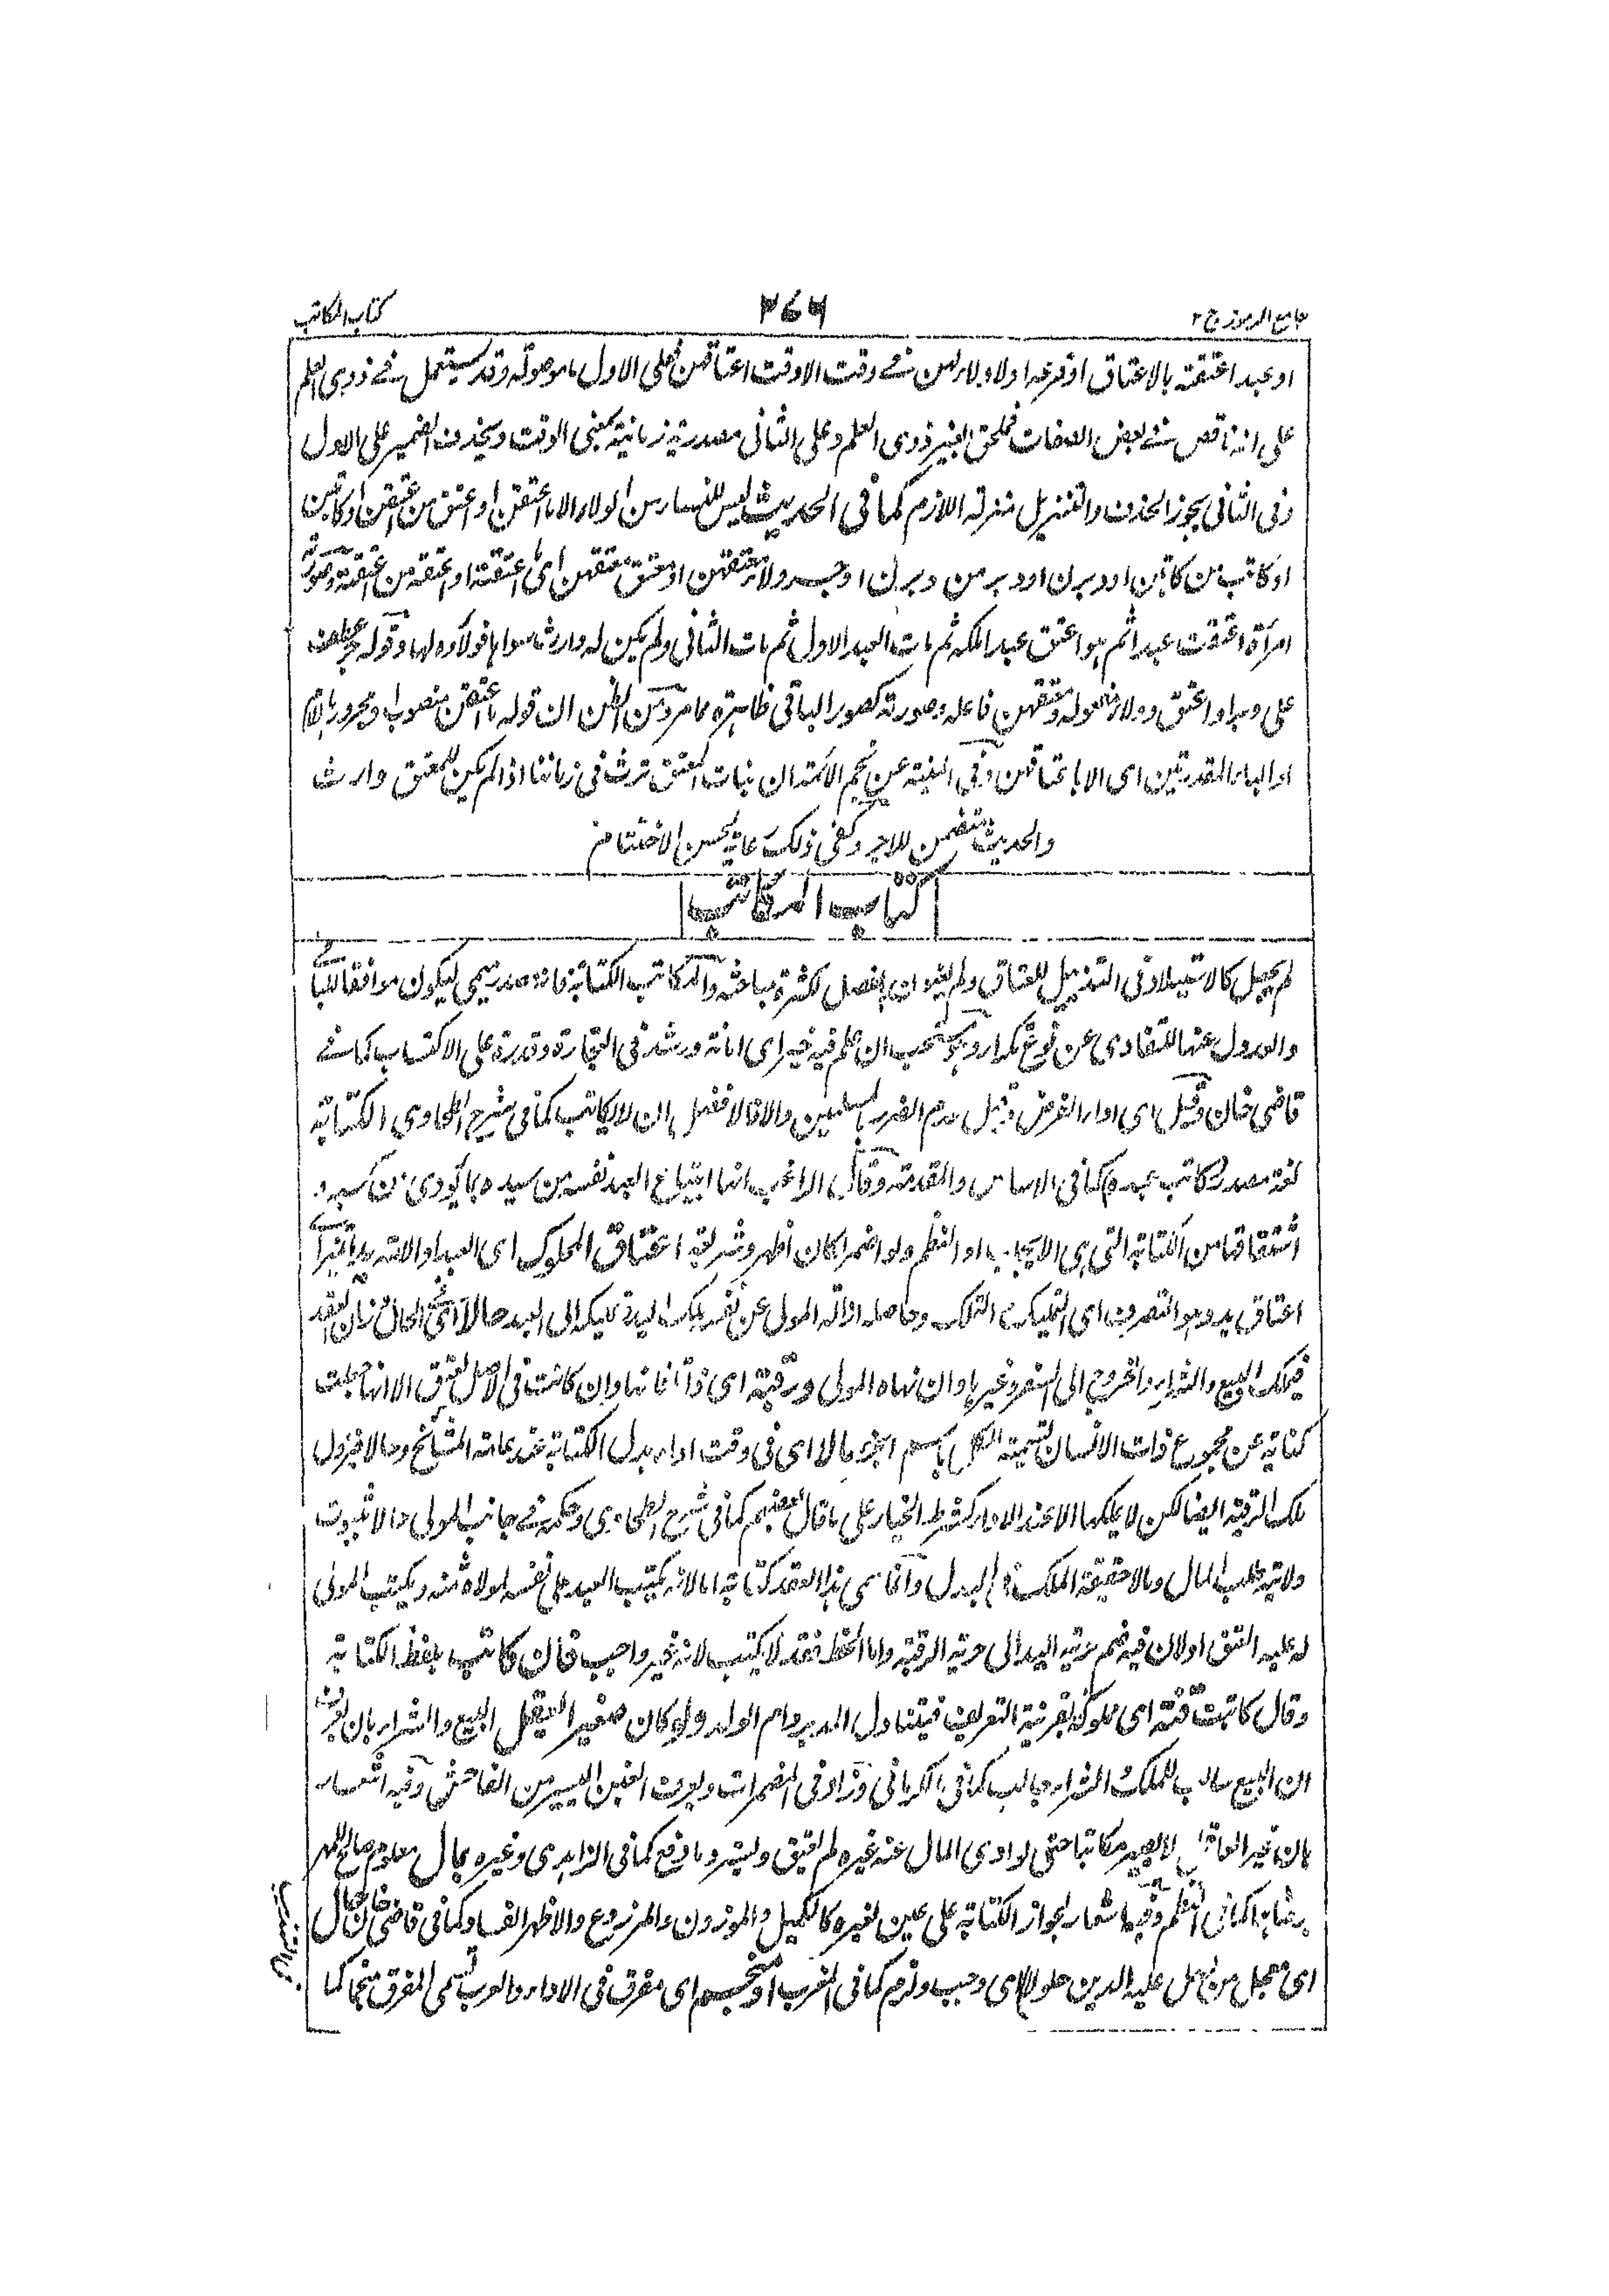 جامع الرموز ج ٢
٣٧٦
كتاب المكاتب
او عبد اعتقته بالاعتاق او فرعه اولا ولاء لهن فى وقت الا وقت اعتاقهن فعلى الاول ما موصولة وقد يستعمل فى ذوى العلم
على انه ناقص فى بعض الصفات فملحق بغير ذوى العلم وعلى الثانى مصدرية زمانية بمعنى الوقت ويحذف الضمير على الاول
وفى الثانى يجوز الحذف والتنزيل منزلة اللازم كما فى الحديث ليس للنساء من الولاء الا ما اعتقن او اعتق من اعتقن او كاتبن
او كاتب من كاتبن او دبرن او دبر من دبرن او جر ولاء معتقهن او معتق معتقهن اى اعتقته او اعتقه من اعتقته وصورته
امرأة اعتقت عبدا ثم هو اعتق عبدا ملكه ثم مات العبد الاول ثم مات الثانى ولم يكن له وارث سواها فولاؤه لها وقوله جر عطف
على دبر او اعتق وولاء مفعوله ومعتقهن فاعله وصورته كصور الباقى ظاهرة مما مر ومن الظن ان قوله ما اعتقن منصوب او مجرور باللام
او الباء المقدرتين اى الا باعتاقهن وفى المنية عن نجم الائمة ان بنات المعتق ترث فى زماننا اذا لم يكن للمعتق وارث
والحديث متضمن للاجر وكفى ذلك غاية لحسن الاختتام
كتاب المكاتب
لم يجعل كالاستيلاد فى التذييل للعتاق ولم يعنون بالفصل لكثرة مباحثه والمكاتب الكتابة فانه مصدر ميمى ليكون موافقا للباقى
والعدول عنها للتفادى عن نوع تكرار وهو مستحب ان علم فيه خيرا اى امانة ورشد فى التجارة وقدرة على الاكتساب كما فى
قاضى خان وقيل اى اداء الفرض وقيل عدم الضرر بالمسلمين والا فالافضل ان لا يكاتب كما فى شرح الطحاوى الكتابة
لغة مصدر كاتب عبده كما فى الاساس والمقدمة وقال الراغب انها ابتياع العبد نفسه من سيده بما يؤدى من كسبه و
اشتقاقها من الكتابة التى هى الايجاب او النظم ولو اضمر لكان اظهر وشريعة اعتاق المملوك اى العبد او الامة يدا تميز اى
اعتاق يده وهو التصرف اى التمليك التملك وحاصله ازالة المولى عن نفسه ملك اليد وتمليكه الى العبد حالا اى فى الحال من زمان العقد
فيملك البيع والشراء والخروج الى السفر وغيرها وان نهاه المولى ورقبة اى ذاتا فانها وان كانت فى الاصل العنق الا انها جعلت
كناية عن مجموع ذات الانسان تسمية للكل باسم الجزء مالا اى فى وقت اداء بدل الكتابة عند عامة المشائخ وحالا فيزول
ملك الرقبة ايضا لكن لا يملكها الا عند الاداء كشرط الخيار على ما قال بعضهم كما فى شرح الطحاوى وحكمه فى جانب المولى حالا ثبوت
ولاية طلب المال ومالا حقيقة الملك فى البدل وانما سمى هذا العقد كتابة اما لانه يكتب العبد على نفسه لمولاه ثمنه ويكتب المولى
له عليه العتق او لان فيه ضم حرية اليد الى حرية الرقبة واما الخط فقد لا يكتب لانه غير واجب فان كاتب بلفظ الكتابة
وقال كاتبت قنه اى مملوكه بقرينة التعريف فيتناول المدبر وام الولد ولو كان صغيرا يعقل البيع والشراء بان يعرف
ان البيع سالب للملك والشراء جالب كما فى الكرمانى وزاد فى المضمرات ويعرف الغبن اليسير من الفاحش وفيه اشعار
بان غير العاقل لا يصير مكاتبا حتى لو ادى المال عنه غيره لم يعتق ويسترد ما دفع كما فى الزاهدى وغيره بمال معلوم صالح للمهر
برضاهما كما فى النظم وفيه اشعار بجواز الكتابة على عين لغيره كالمكيل والموزون والمزروع والاظهر الفساد كما فى قاضى خان حال
اى معجل من حل عليه الدين حلولا اى وجب ولزم كما فى المغرب او منجم اى مفرق فى الاداء والعرب تسمى المفرق منجما كما